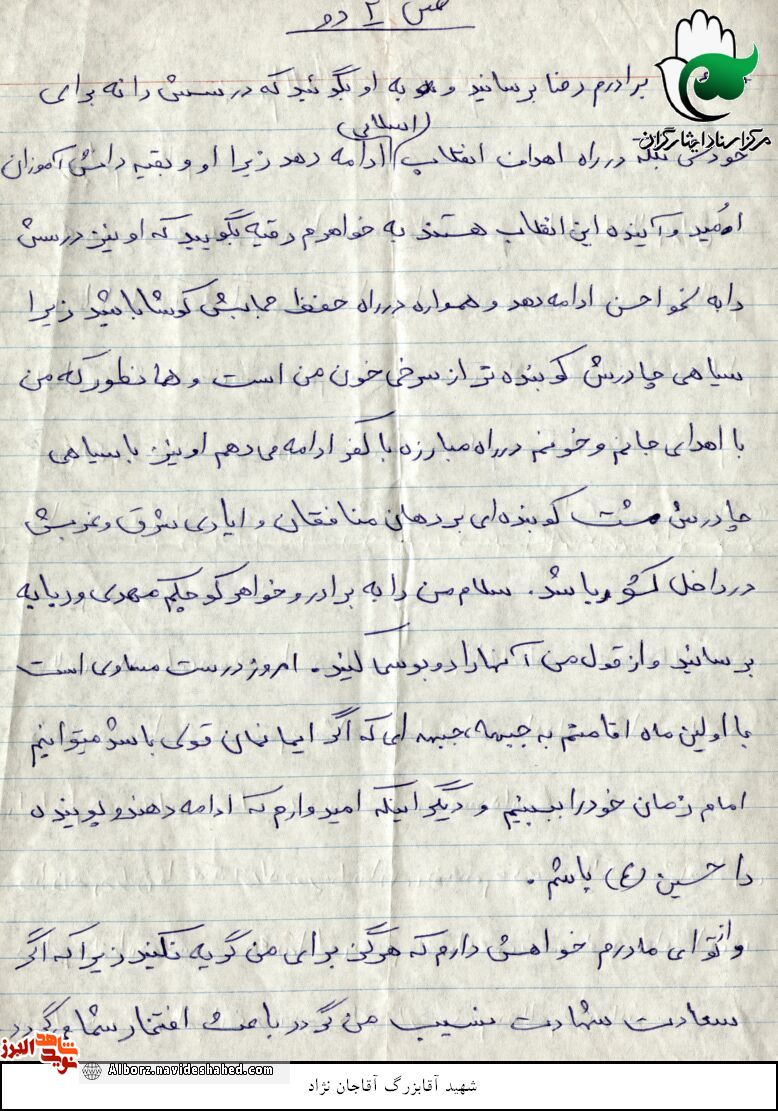 ص ۲ دو
برادرم رضا برسانید و به او بگوئید که درسش را نه برای
مرکز اسناد ایثارگران
(اسلامی)
خودش بلکه در راه اهداف انقلاب ادامه دهد زیرا او و بقیه دانش آموزان
امُید و آینده این انقلاب هستند به خواهرم رقیه بگویید که او نیز درسش
را به نحو احسن ادامه دهد و همواره در راه حفظ حجابش کوشا باشید زیرا
سیاهی چادرش کوبنده تر از سرخی خون من است و همانطور که من
با اهدای جانم و خونم در راه مبارزه با کفر ادامه می دهم او نیز با سیاهی
چادرش مشت کوبنده ای بر دهان منافقان و ایادی شرق و غربش
در داخل کشور باشد. سلام من را به برادر و خواهر کوچکم مهدی و ربابه
برسانید و از قول من آنها را دو بوسه کنید. امروز درست مساوی است
با اولین ماه اقامتم به جبهه، جبهه ای که اگر ایمانمان قوی باشد میتوانیم
امام زمان خود را ببینیم و دیگر اینکه امیدوارم که ادامه دهنده و پوینده
راه حسین (ع) باشم.
و از تو ای مادرم خواهش دارم که هرگز برای من گریه نکنید زیرا که اگر
سعادت شهادت نصیب من گردد باعث افتخار شما میگردد.
نوید شاهد البرز
Alborz.navideshahed.com
شهید آقابزرگ آقاجان نژاد